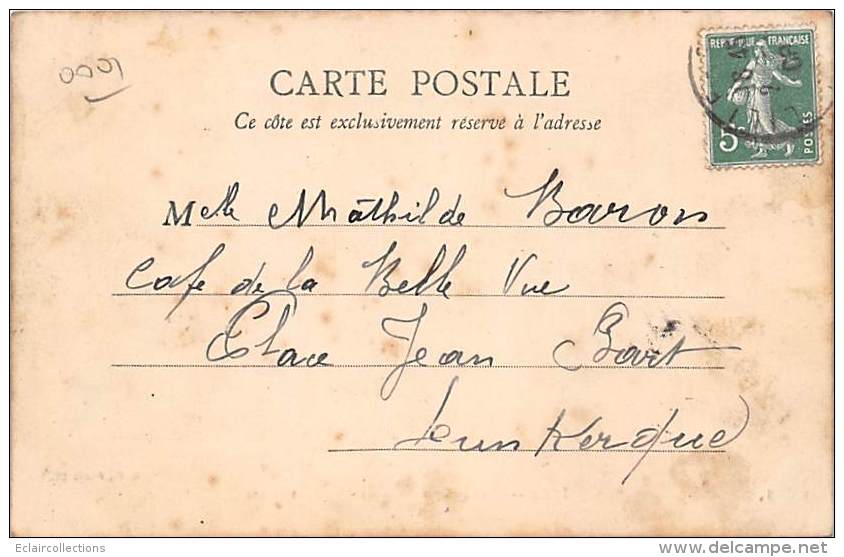 CARTE POSTALE
Ce côte est exclusivement réservé à l'adresse
REPUBLIQUE FRANÇAISE
5c
POSTES
Melle Mathilde Baron
Cafe de la Belle Vue
Place Jean Bart
Dunkerque
Eclaircollections
www.delcampe.net